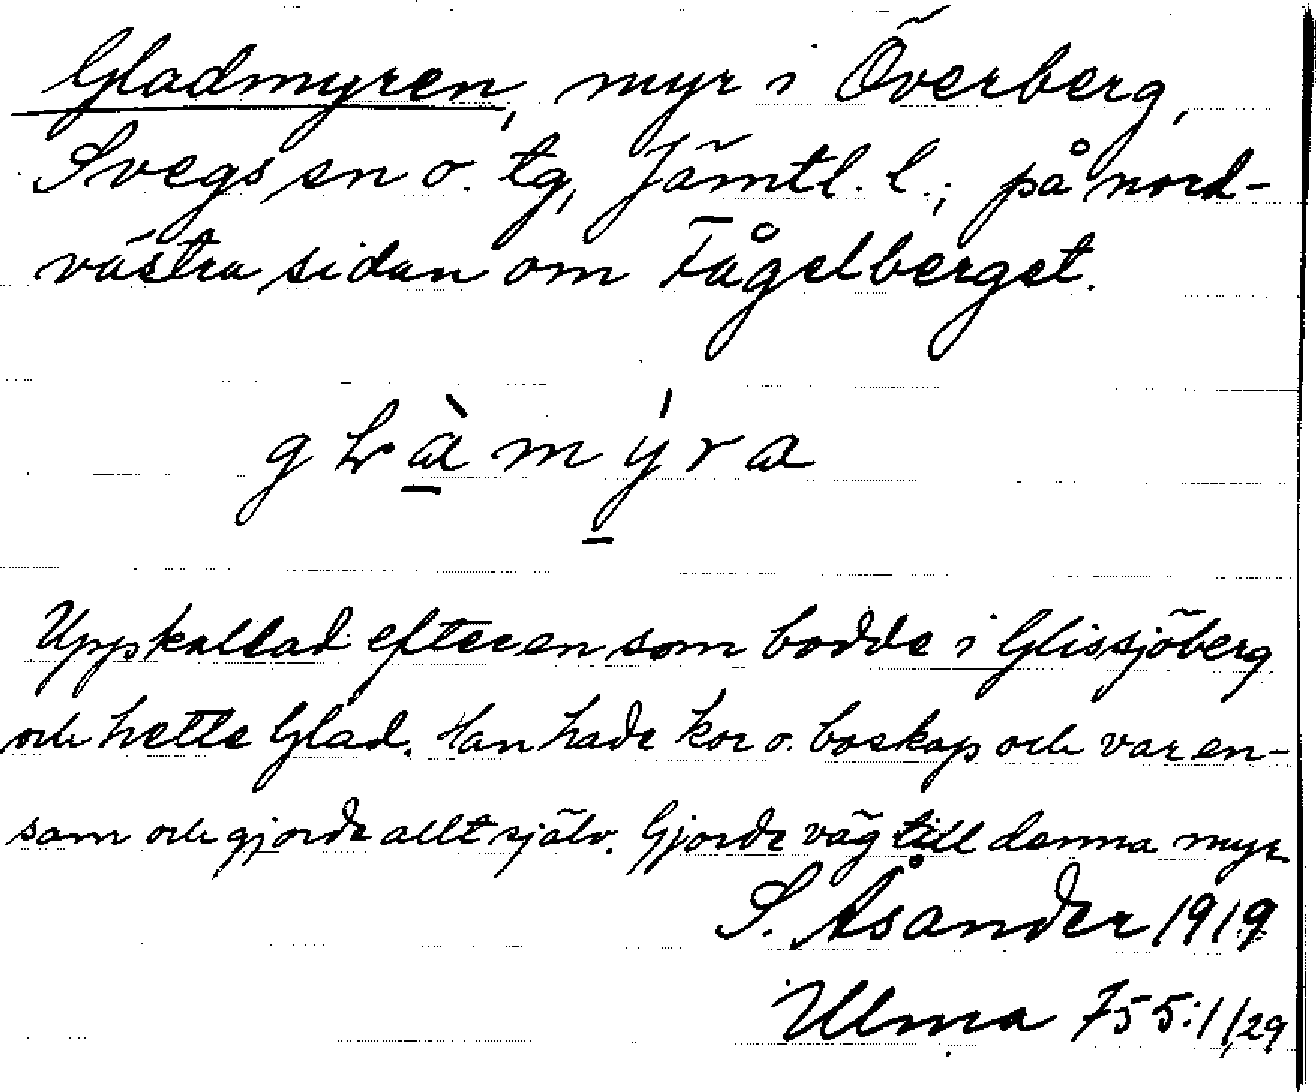 Gladmyren, myr i Överberg,
Svegs sn o. tg, Jämtl. l.; på nord-
västra sidan om Fågelberget.
gɫàmýra
Uppkallad efter en som bodde i Glissjöberg
och hette Glad. Han hade kor o. boskap och var en-
sam och gjorde allt själv. Gjorde väg till denna myr
S. Åsander 1919
Ulma 755:1/29